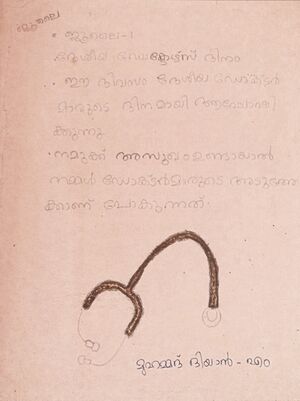 ജൂലൈ
• ജൂലൈ-1
ദേശീയ ഡോക്ടേഴ്സ് ദിനം
• ഈ ദിവസം ദേശീയ ഡോക്ടർ
മാരുടെ ദിനമായി ആഘോഷി
ക്കുന്നു.
• നമുക്ക് അസുഖം ഉണ്ടായാൽ
നമ്മൾ ഡോക്ടർമാരുടെ അടുത്തേ
ക്കാണ് പോകുന്നത്.
മുഹമ്മദ് ദിയാൻ -